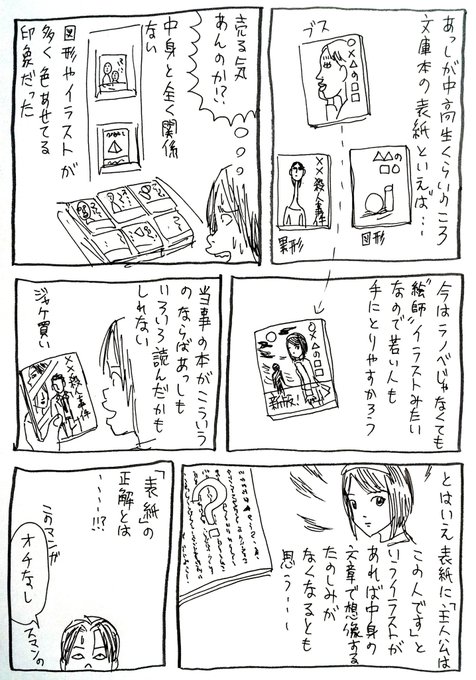 あっしが中高生くらいのころ
文庫本の表紙といえば…
ブス
××殺人事件
異形
図形
売る気
あんのか!?
中身と全く関係
ない
図形やイラストが
多く色あせてる
印象だった
今はラノベじゃなくても
"絵師"イラストみたい
なので若い人も
手にとりやすかろう
新版!
当事の本がこういう
のならばあっしも
いろいろ読んだかも
しれない
ジャケ買い
××殺人事件
とはいえ表紙に「主人公は
この人です」と
いうイラストが
あれば中身の
文章で想像する
たのしみが
なくなるとも
思う…
?
「表紙」の
正解とは
…!?
このマンガ
オチなし
スマンの